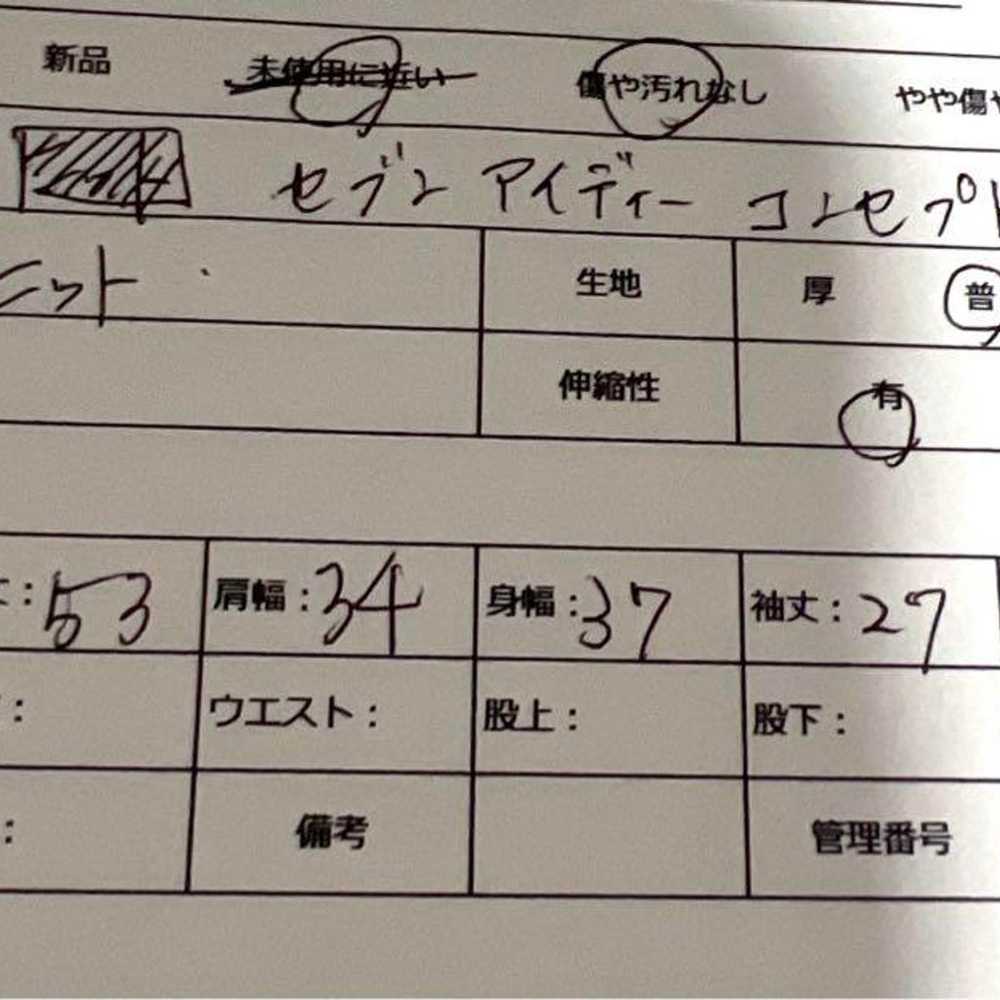 新品 未使用に近い 傷や汚れなし やや傷
セブン アイディー コンセプト
ニット 生地 厚 普
伸縮性 有
:53 肩幅:34 身幅:37 袖丈:27
: ウエスト: 股上: 股下:
: 備考 管理番号